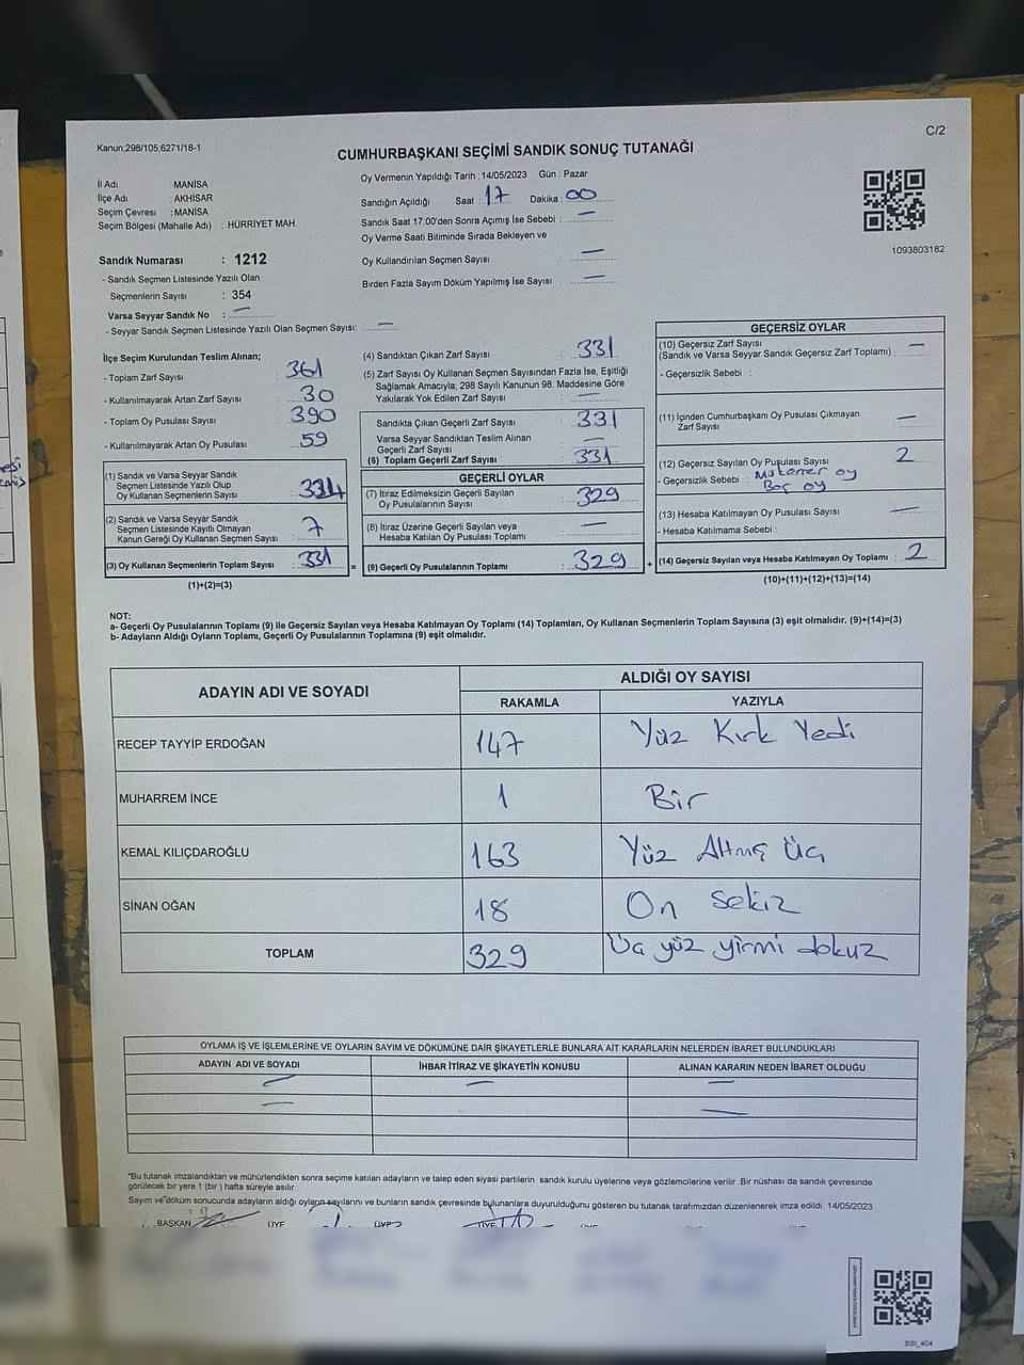 C/2
Kanun:298/105,6271/18-1
CUMHURBAŞKANI SEÇİMİ SANDIK SONUÇ TUTANAĞI
İl Adı : MANİSA
İlçe Adı : AKHİSAR
Seçim Çevresi : MANİSA
Seçim Bölgesi (Mahalle Adı) : HÜRRİYET MAH.
Sandık Numarası : 1212
- Sandık Seçmen Listesinde Yazılı Olan
Seçmenlerin Sayısı : 354
Varsa Seyyar Sandık No : —
- Seyyar Sandık Seçmen Listesinde Yazılı Olan Seçmen Sayısı: —
Oy Vermenin Yapıldığı Tarih : 14/05/2023 Gün : Pazar
Sandığın Açıldığı Saat : 17 Dakika : 00
Sandık Saat 17.00'den Sonra Açımış İse Sebebi : —
Oy Verme Saati Bitiminde Sırada Bekleyen ve
Oy Kullandırılan Seçmen Sayısı —
Birden Fazla Sayım Döküm Yapılmış İse Sayısı —
1093803182
İlçe Seçim Kurulundan Teslim Alınan;
- Toplam Zarf Sayısı 361
- Kullanılmayarak Artan Zarf Sayısı 30
- Toplam Oy Pusulası Sayısı 390
- Kullanılmayarak Artan Oy Pusulası 59
(1) Sandık ve Varsa Seyyar Sandık
Seçmen Listesinde Yazılı Olup
Oy Kullanan Seçmenlerin Sayısı 324
(2) Sandık ve Varsa Seyyar Sandık
Seçmen Listesinde Kayıtlı Olmayan
Kanun Gereği Oy Kullanan Seçmen Sayısı 7
(3) Oy Kullanan Seçmenlerin Toplam Sayısı : 331 =
(1)+(2)=(3)
(4) Sandıktan Çıkan Zarf Sayısı 331
(5) Zarf Sayısı Oy Kullanan Seçmen Sayısından Fazla İse, Eşitliği
Sağlamak Amacıyla, 298 Sayılı Kanunun 98. Maddesine Göre
Yakılarak Yok Edilen Zarf Sayısı —
Sandıkta Çıkan Geçerli Zarf Sayısı 331
Varsa Seyyar Sandıktan Teslim Alınan
Geçerli Zarf Sayısı —
(6) Toplam Geçerli Zarf Sayısı 331
GEÇERLİ OYLAR
(7) İtiraz Edilmeksizin Geçerli Sayılan
Oy Pusulalarının Sayısı : 329
(8) İtiraz Üzerine Geçerli Sayılan veya
Hesaba Katılan Oy Pusulası Toplamı —
(9) Geçerli Oy Pusulalarının Toplamı : 329 +
GEÇERSİZ OYLAR
(10) Geçersiz Zarf Sayısı
(Sandık ve Varsa Seyyar Sandık Geçersiz Zarf Toplamı) —
- Geçersizlik Sebebi :
(11) İçinden Cumhurbaşkanı Oy Pusulası Çıkmayan
Zarf Sayısı —
(12) Geçersiz Sayılan Oy Pusulası Sayısı 2
- Geçersizlik Sebebi : oy
Boş oy
(13) Hesaba Katılmayan Oy Pusulası Sayısı —
- Hesaba Katılmama Sebebi :
(14) Geçersiz Sayılan veya Hesaba Katılmayan Oy Toplamı : 2
(10)+(11)+(12)+(13)=(14)
NOT:
a- Geçerli Oy Pusulalarının Toplamı (9) ile Geçersiz Sayılan veya Hesaba Katılmayan Oy Toplamı (14) Toplamları, Oy Kullanan Seçmenlerin Toplam Sayısına (3) eşit olmalıdır. (9)+(14)=(3)
b- Adayların Aldığı Oyların Toplamı, Geçerli Oy Pusulalarının Toplamına (9) eşit olmalıdır.
ADAYIN ADI VE SOYADI
ALDIĞI OY SAYISI
RAKAMLA YAZIYLA
RECEP TAYYİP ERDOĞAN 147 Yüz Kırk Yedi
MUHARREM İNCE 1 Bir
KEMAL KILIÇDAROĞLU 163 Yüz Altmış Üç
SİNAN OĞAN 18 On Sekiz
TOPLAM 329 Üç yüz yirmi dokuz
OYLAMA İŞ VE İŞLEMLERİNE VE OYLARIN SAYIM VE DÖKÜMÜNE DAİR ŞİKAYETLERLE BUNLARA AİT KARARLARIN NELERDEN İBARET BULUNDUKLARI
ADAYIN ADI VE SOYADI İHBAR İTİRAZ VE ŞİKAYETİN KONUSU ALINAN KARARIN NEDEN İBARET OLDUĞU
*Bu tutanak imzalandıktan ve mühürlendikten sonra seçime katılan adayların ve talep eden siyasi partilerin sandık kurulu üyelerine veya gözlemcilerine verilir. Bir nüshası da sandık çevresinde
görülecek bir yere 1 (bir) hafta süreyle asılır.
Sayım ve döküm sonucunda adayların aldığı oyların sayılarını ve bunların sandık çevresinde bulunanlara duyurulduğunu gösteren bu tutanak tarafımızdan düzenlenerek imza edildi. 14/05/2023
BAŞKAN ÜYE ÜYE ÜYE